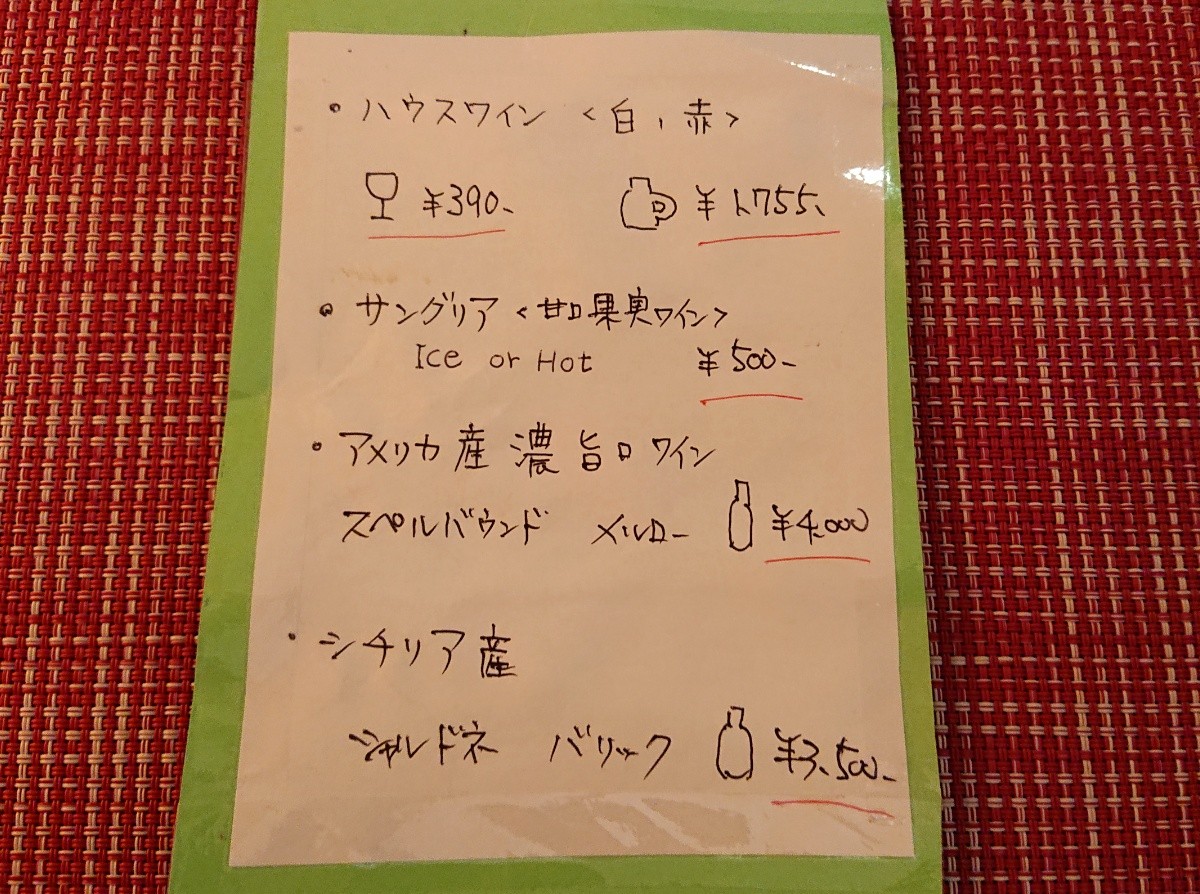 ・ハウスワイン <白、赤>
¥390- ¥1,755、
・サングリア <甘口果実ワイン>
Ice or Hot ¥500-
・アメリカ産 濃旨口ワイン
スペルバウンド メルロー ¥4,000
・シチリア産
シャルドネ バリック ¥3,500-